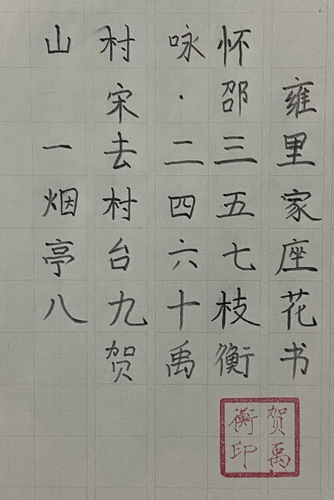 山村咏怀
宋·邵雍
一去二三里
烟村四五家
亭台六七座
八九十枝花
贺禹衡书
贺禹
衡印